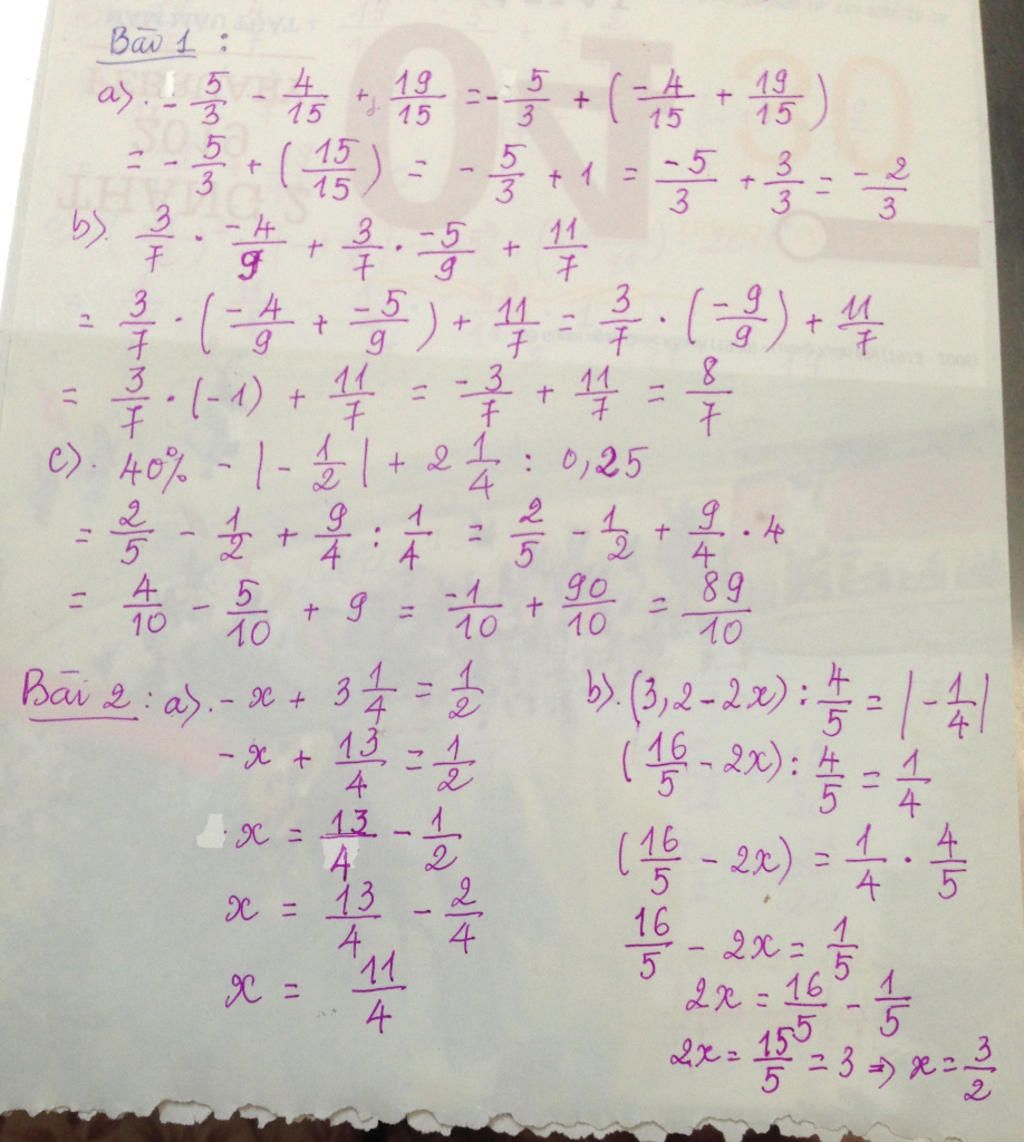 Bài 1 :
a). - 5/3 - 4/15 + 19/15 = - 5/3 + ( -4/15 + 19/15 )
= - 5/3 + ( 15/15 ) = - 5/3 + 1 = -5/3 + 3/3 = -2/3
b). 3/7 . -4/9 + 3/7 . -5/9 + 11/7
= 3/7 . ( -4/9 + -5/9 ) + 11/7 = 3/7 . ( -9/9 ) + 11/7
= 3/7 . (-1) + 11/7 = -3/7 + 11/7 = 8/7
c). 40% - | - 1/2 | + 2 1/4 : 0,25
= 2/5 - 1/2 + 9/4 : 1/4 = 2/5 - 1/2 + 9/4 . 4
= 4/10 - 5/10 + 9 = -1/10 + 90/10 = 89/10
Bài 2 : a). - x + 3 1/4 = 1/2
- x + 13/4 = 1/2
x = 13/4 - 1/2
x = 13/4 - 2/4
x = 11/4
b). (3,2 - 2x) : 4/5 = | - 1/4 |
( 16/5 - 2x) : 4/5 = 1/4
( 16/5 - 2x) = 1/4 . 4/5
16/5 - 2x = 1/5
2x = 16/5 - 1/5
2x = 15/5 = 3 => x = 3/2